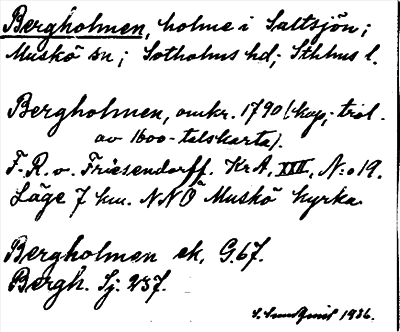 Bergholmen, holme i Saltsjön;
Muskö sn; Sotholms hd; Sthlms l.
Bergholmen, omkr. 1790 (kop. trol.
av 1600-talskarta).
F. R. v. Friesendorff. KrA, XIII, N:o 19.
Läge 7 km. NNO Muskö kyrka.
Bergholmen ek, G.67.
Bergh. Sj. 237.
S. Lundqvist 1936.